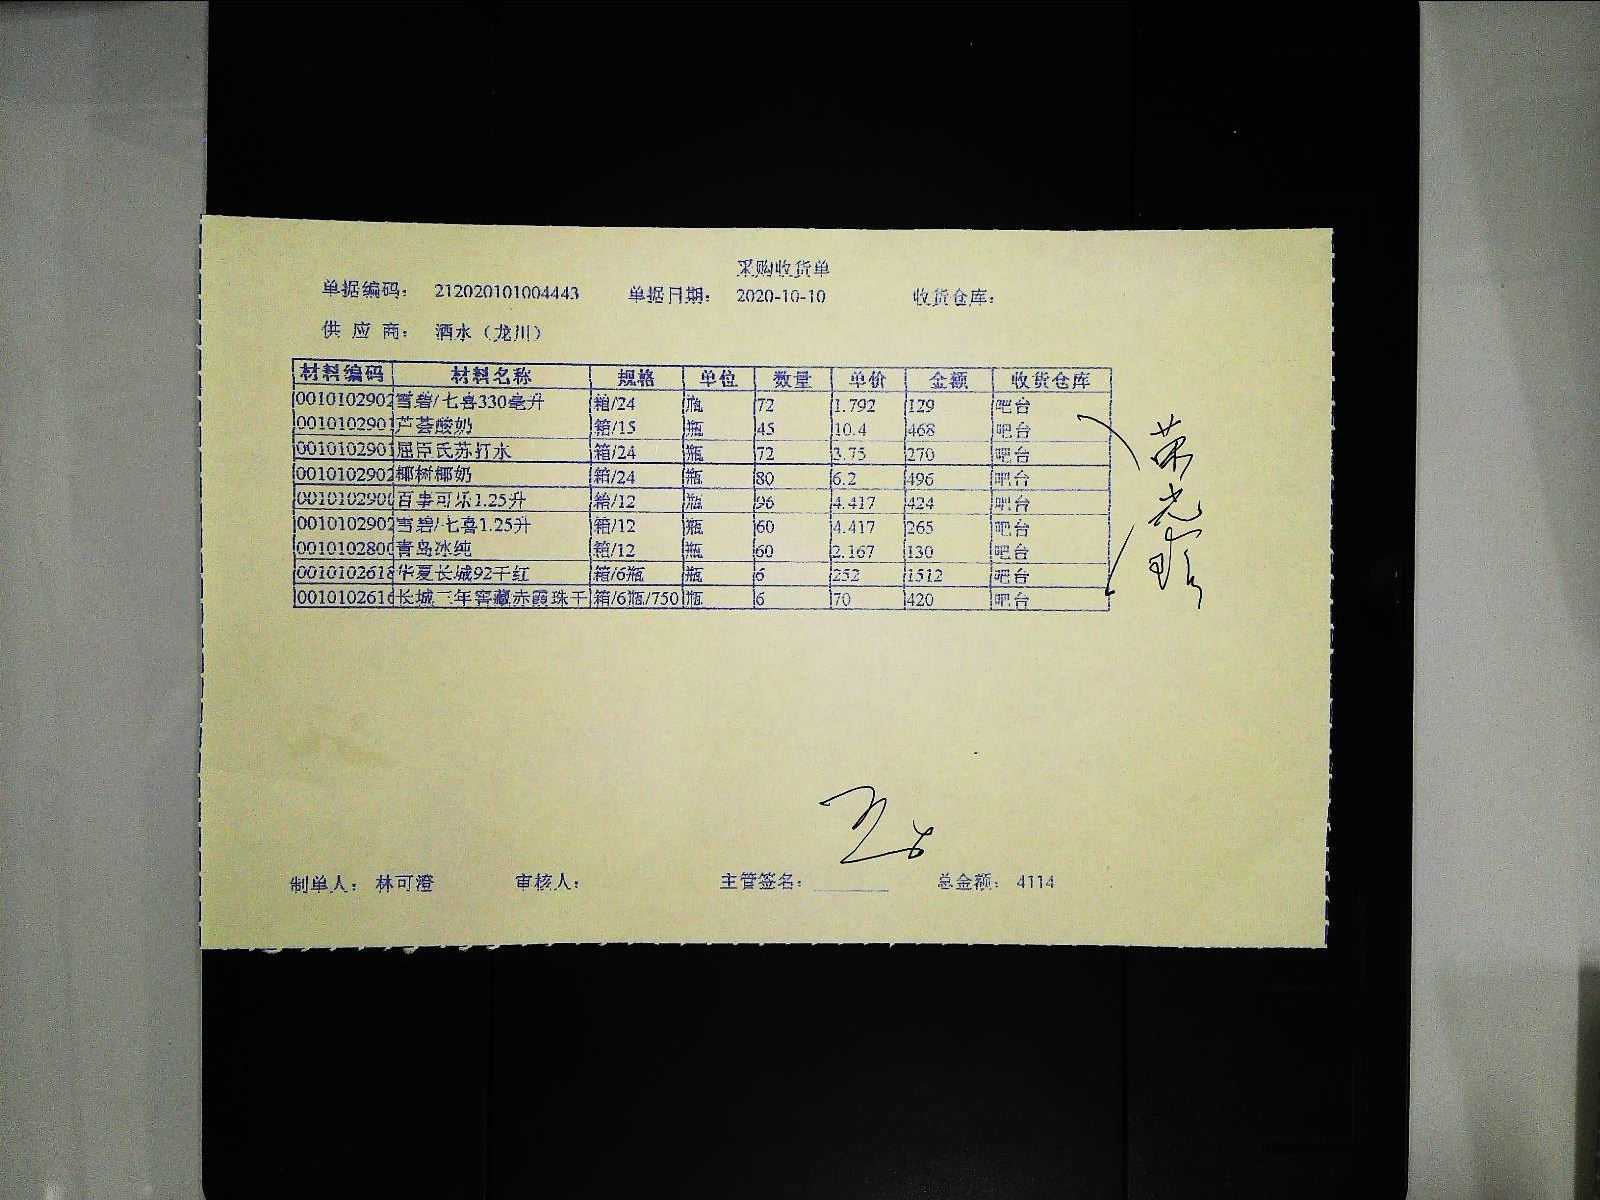 采购收货单
单据编码： 212020101004443 单据日期： 2020-10-10 收货仓库：
供 应 商： 酒水（龙川）
材料编码 材料名称 规格 单位 数量 单价 金额 收货仓库
0010102902 雪碧/七喜330毫升 箱/24 瓶 72 1.792 129 吧台
0010102901 芦荟酸奶 箱/15 瓶 45 10.4 468 吧台
0010102901 屈臣氏苏打水 箱/24 瓶 72 3.75 270 吧台
0010102902 椰树椰奶 箱/24 瓶 80 6.2 496 吧台
001010290 百事可乐1.25升 箱/12 瓶 96 4.417 424 吧台
0010102902 雪碧/七喜1.25升 箱/12 瓶 60 4.417 265 吧台
001010280 青岛冰纯 箱/12 瓶 60 2.167 130 吧台
001010261 华夏长城92干红 箱/6瓶 瓶 6 252 1512 吧台
001010261 长城三年窖藏赤霞珠干 箱/6瓶/750 瓶 6 70 420 吧台
制单人： 林可澄 审核人： 主管签名： 总金额： 4114